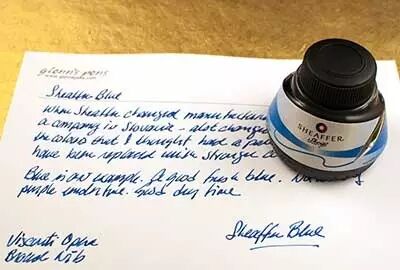 glenn's pens
www.glennspens.com
Sheaffer Blue
When Sheaffer changed manufacturing
a company is Slovenia - also changed
the colors that I thought had a
have been replaced with stronger
Blue is one example. A good fresh blue.
purple undertone. Good dry time.
SHEAFFER
Skrip
Visconti Opera
Broad Nib
Sheaffer Blue